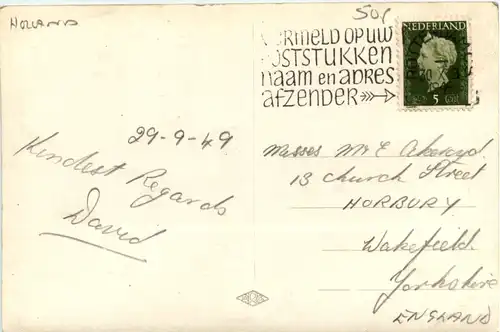 HOLLAND
50/
VERMELD OP UW
POSTSTUKKEN
naam en adres
afzender
NEDERLAND
5
29-9-49
Kindest Regards
David
Misses M & E Akeroyd.
13 Church Street
HORBURY
Wakefield.
Yorkshire
ENGLAND